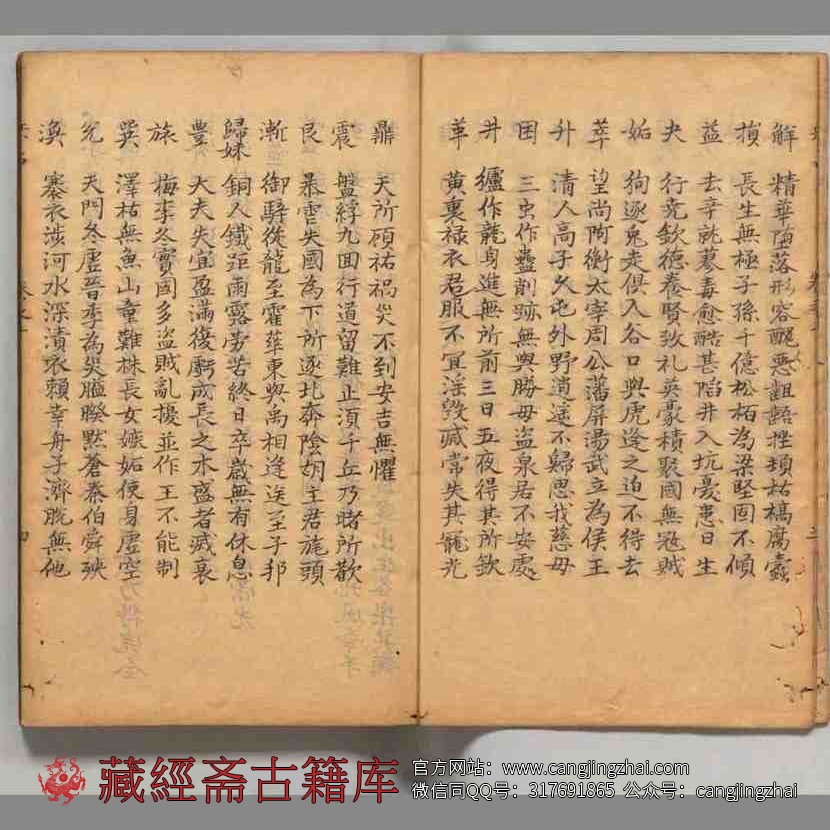 解 精華墮落形容醜惡齟齬挫頓枯槁腐蠹
損 長生無極子孫千億松栢為梁堅固不傾
益 去辛就蓼毒愈酷甚陷井入坑憂患日生
夬 行尭欽德養賢致礼英豪積聚國無冦賊
姤 狗逐兎走俱入谷口與虎逢之迫不得去
萃 望尚阿衡太宰周公藩屏湯武立為侯王
升 清人高子久屯外野逍遥不歸思我慈母
困 三虫作蠱削跡無與勝母盜泉君不安處
井 纑作龍身進無所前三日五夜得其所欽
革 黃裏禄衣君服不宜淫毀减常失其寵光
鼎 天所顧祐禍灾不到安吉無懼
震 盤紆九回行道留難止須千丘乃睹所歡
艮 暴虐失國為下所逐北奔陰胡主君旄頭
漸 御騂從龍至霍華東與禹相逢送至子邦
歸妹 銅人鐵距雨露勞苦終日卒歲無有休息
豊 大夫失宜盈滿復虧成長之木盛者减衰
旅 梅李冬實國多盜賊亂擾並作王不能制
巽 澤枯無魚山童難株長女嫉妬使身虛空
兊 天門冬虛晉季為灾膃睽黙蒼秦伯舜殃
渙 褰衣涉河水深漬衣賴幸舟子濟脫無他
藏經斋古籍库
官方网站：www.cangjingzhai.com
微信同QQ号：317691865 公众号：cangjingzhai